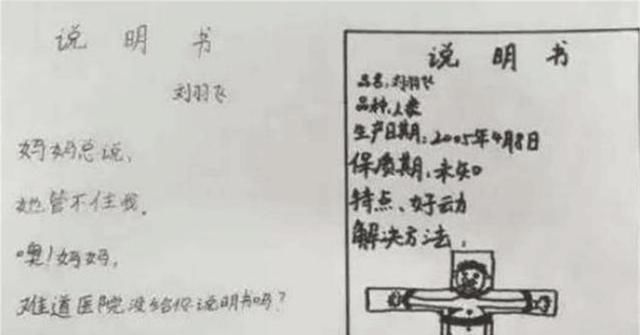 说 明 书
刘羽飞
妈妈总说，
她管不住我。
噢！妈妈，
难道医院没给你说明书吗？
说 明 书
品名：刘羽飞
品种：人类
生产日期：2005年4月8日
保质期：未知
特点：好动
解决方法：